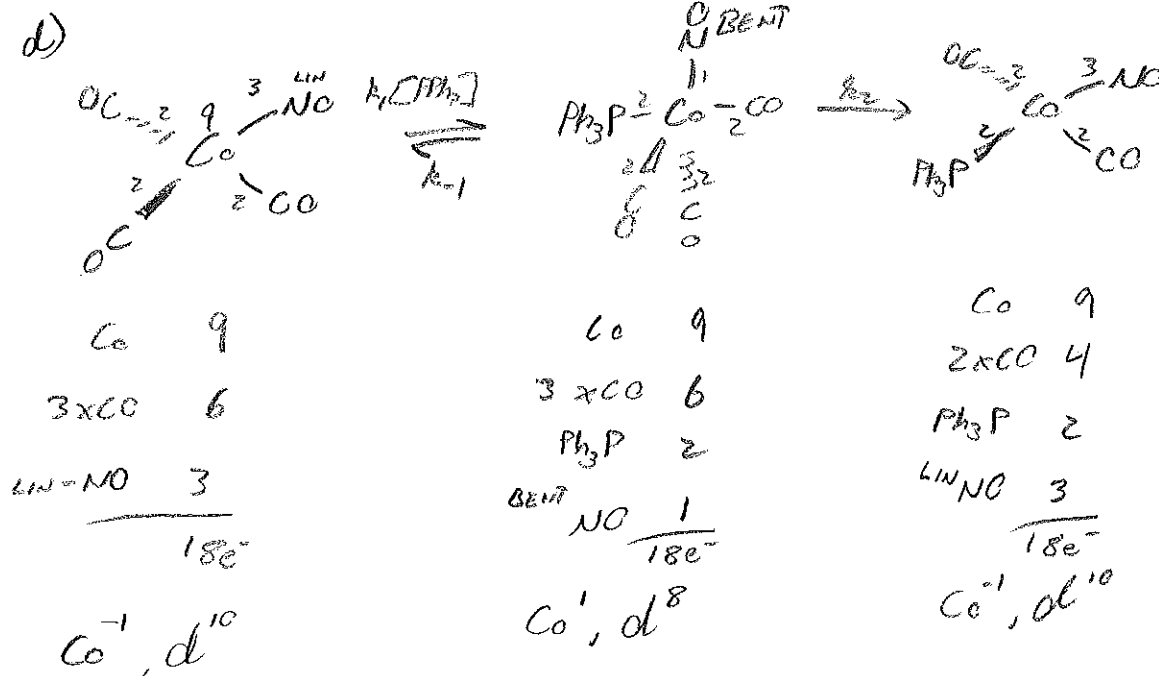 d)
OC 2 9 3 LIN NO
Co
2 2 CO
OC
k₁[PPh₃]
k₋₁
O
N BENT
1
Ph₃P 2 Co 2 CO
2 2
C C
O O
k₂
OC 2 3 NO
Co
2 2
Ph₃P CO
Co 9
3xCO 6
LIN-NO 3
18e⁻
Co⁻¹, d¹⁰
Co 9
3xCO 6
Ph₃P 2
BENT NO 1
18e⁻
Co¹, d⁸
Co 9
2xCO 4
Ph₃P 2
LIN NO 3
18e⁻
Co⁻¹, d¹⁰